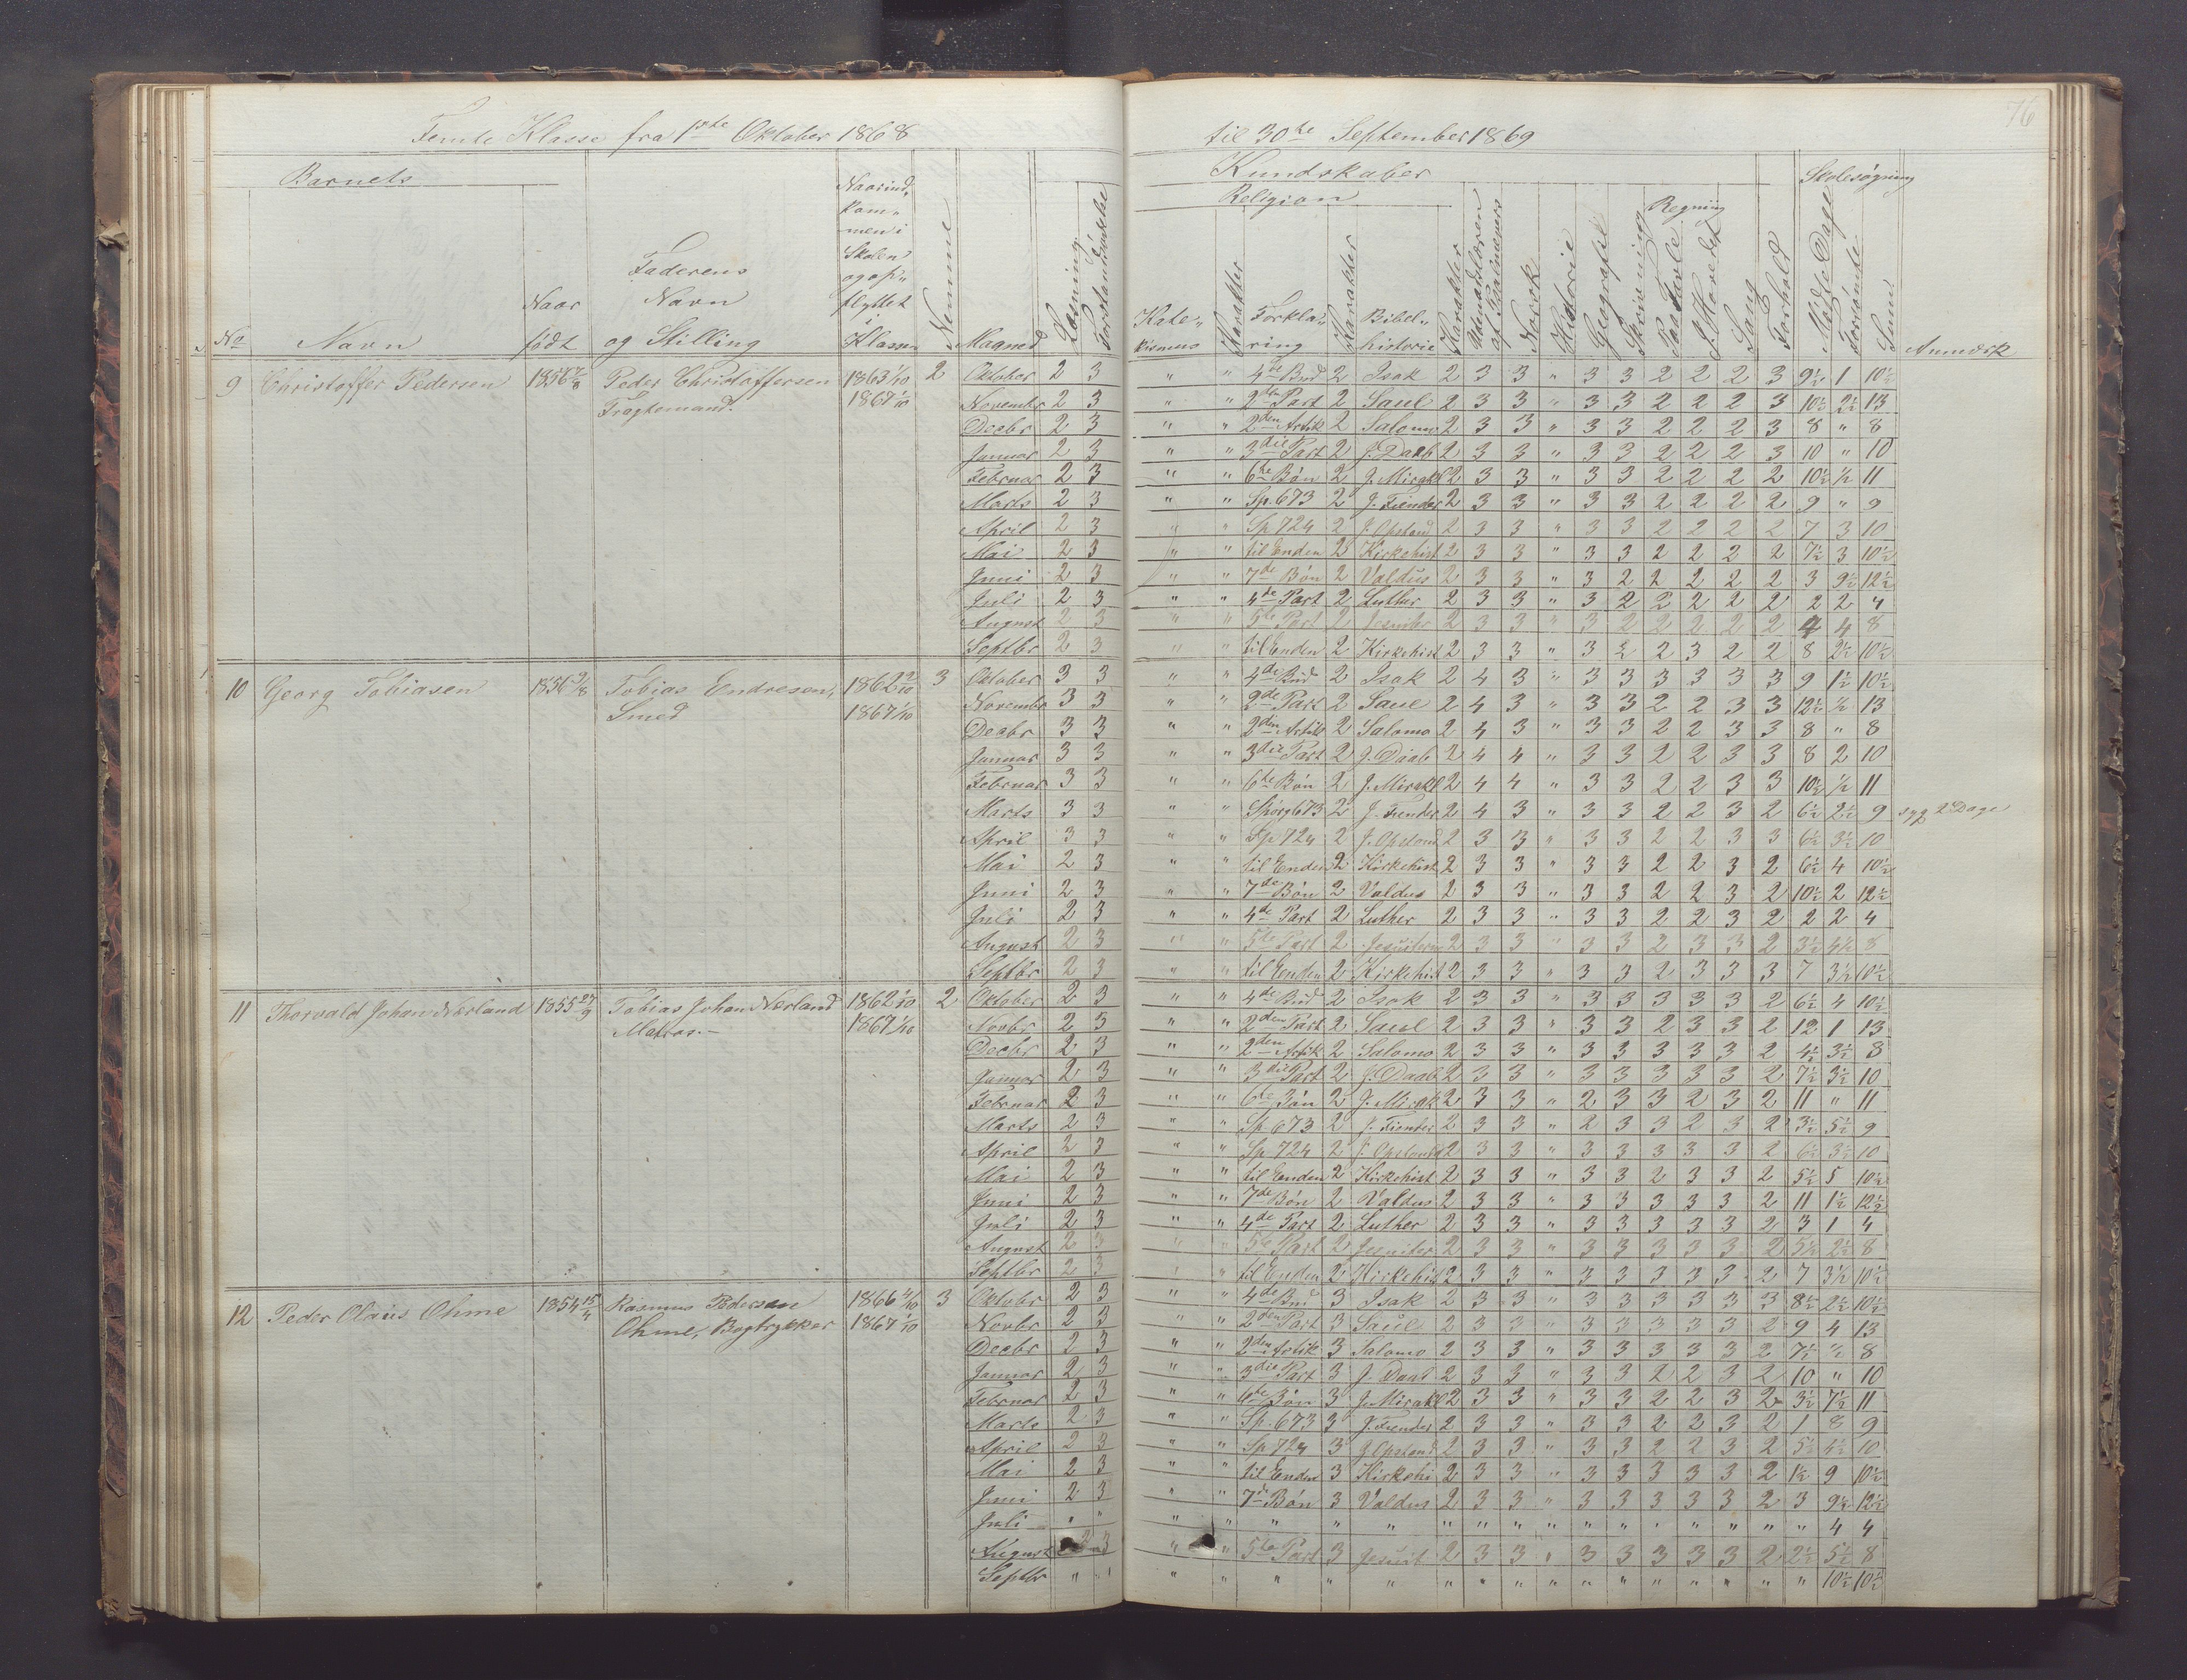 76
Femte Klasse fra 1ste Oktober 1868 til 30te September 1869
Barnets
Kundskaber
Skolesøgning
Religion
Regning
No
Navn
Naar
født
Faderens
Navn
og Stilling
Naar ind„
kom„
men i
Skolen
og op„
flyttet
i
Klassen
Nemme
Maaned
Læsning
Forstandsøvelse
Kate„
kismus
Karakter
Forkla„
ring
Karakter
Bibel„
historie
Karakter
Udenadlæren
af Psalmevers
Norsk
Historie
Geografi
Skrivning
Paa Tavle
I Hovedet
Sang
Forhold
Mødte Dage
Forsømte
Sum
Anmærk
9 Christoffer Pedersen 1856 17/8 Peder Christoffersen 1863 1/10 2 Oktober 2 3 " " 4de Bud 2 Isak 2 3 3 " 3 3 2 2 2 3 9½ 1 10½
Fragtemand. 1867 1/10 Novembr 2 3 " " 2den Part 2 Saul 2 3 3 " 3 3 2 2 2 3 10½ 2½ 13
Decbr 2 3 " " 2den Artik 2 Salomo 2 3 3 " 3 3 2 2 2 3 8 " 8
Januar 2 3 " " 3die Part 2 J. Daab 2 3 3 " 3 3 2 2 2 3 10 " 10
Februar 2 3 " " 6te Bøn 2 J. Mirakl 2 3 3 " 3 3 2 2 2 2 10½ ½ 11
Marts 2 3 " " Sp. 673 2 J. Fiender 2 3 3 " 3 3 2 2 2 2 9 " 9
April 2 3 " " Sp 724 2 J. Opstand 2 3 3 " 3 3 2 2 2 2 7 3 10
Mai 2 3 " " til Enden 2 Kirkehist 2 3 3 " 3 3 2 2 2 2 7½ 3 10½
Juni 2 3 " " 7de Bøn 2 Valdus 2 3 3 " 3 2 2 2 2 2 3 9½ 12½
Juli 2 3 " " 4de Part 2 Luther 2 3 3 " 3 2 2 2 2 2 2 2 4
August 2 3 " " 5te Part 2 Jesuiter 2 3 3 " 3 2 2 2 2 2 4 4 8
Septbr 2 3 " " til Enden 2 Kirkehist 2 3 3 " 3 2 2 3 2 2 8 2½ 10½
10 Georg Tobiasen 1856 2/8 Tobias Endresen, 1862 9/10 3 Oktober 3 3 " " 4de Bud 2 Isak 2 4 3 " 3 3 3 3 3 3 9 1½ 10½
Smed 1867 1/10 Novembr 3 3 " " 2de Part 2 Saul 2 4 3 " 3 3 2 2 3 3 12½ ½ 13
Decbr 3 3 " " 2den Artik 2 Salomo 2 4 3 " 3 3 2 2 3 3 8 " 8
Januar 3 3 " " 3die Part 2 J. Daab 2 4 4 " 3 3 2 2 3 3 8 2 10
Februar 3 3 " " 6te Bøn 2 J. Mirakl 2 4 4 " 3 3 2 2 3 3 10½ ½ 11
Marts 3 3 " " Spørg 673 2 J. Fiender 2 4 3 " 3 3 2 2 3 2 6½ 2½ 9 syg 2 Dage
April 3 3 " " Sp 724 2 J. Opstand 2 3 3 " 3 3 2 2 3 3 6½ 3½ 10
Mai 2 3 " " til Enden 2 Kirkehist 2 3 3 " 3 3 2 2 3 2 6½ 4 10½
Juni 2 3 " " 7de Bøn 2 Valdus 2 3 3 " 3 3 2 2 3 2 10½ 2 12½
Juli 2 3 " " 4de Part 2 Luther 2 3 3 " 3 3 2 2 3 2 2 2 4
August 2 3 " " 5te Part 2 Jesuitern 2 3 3 " 3 3 2 3 3 2 3½ 4½ 8
Septbr 2 3 " " til Enden 2 Kirkehist 2 3 3 " 3 3 2 3 3 3 7 3½ 10½
11 Thorvald Johan Nærland 1855 27/9 Tobias Johan Nærland 1862 1/10 2 Oktober 2 3 " " 4de Bud 2 Isak 2 3 3 " 3 3 3 3 3 2 6½ 4 10½
Matros.— 1867 1/10 Novbr 2 3 " " 2den Part 2 Saul 2 3 3 " 3 3 2 3 3 2 12 1 13
Decbr 2 3 " " 2den Artik 2 Salomo 2 3 3 " 3 3 3 3 3 2 4½ 3½ 8
Januar 2 3 " " 3die Part 2 J. Daab 2 3 3 " 3 3 3 3 3 2 7½ 3½ 10
Februar 2 3 " " 6te Bøn 2 J. Mirak 2 3 3 " 2 3 3 2 3 2 11 " 11
Marts 2 3 " " Sp. 673 2 J. Fiender 2 3 3 " 2 3 3 2 3 2 3½ 5½ 9
April 2 3 " " Sp 724 2 J. Opstand 2 3 3 " 3 3 3 3 3 2 6½ 3½ 10
Mai 2 3 " " til Enden 2 Kirkehist 2 3 3 " 3 3 2 3 3 2 5½ 5 10½
Juni 2 3 " " 7de Bøn 2 Valdus 2 3 3 " 3 3 3 3 3 2 11 1½ 12½
Juli 2 3 " " 4de Part 2 Luther 2 3 3 " 3 3 3 3 3 2 3 1 4
August 2 3 " " 5te Part 2 Jesuiter 2 3 3 " 3 3 3 3 3 2 5½ 2½ 8
Septbr 2 3 " " til Enden 2 Kirkehist 2 3 3 " 3 3 3 3 3 2 7 3½ 10½
12 Peder Olaus Ohme 1854 15/4 Rasmus Pedersen 1866 4/10 3 Oktobr 2 3 " " 4de Bud 3 Isak 2 3 3 " 3 3 3 3 3 3 8½ 2½ 10½
Ohme, Bogtrykker 1867 1/10 Novbr 2 3 " " 2den Part 3 Saul 2 3 3 " 3 3 3 3 3 2 9 4 13
Decbr 2 3 " " 2den Artik 3 Salomo 2 3 3 " 3 3 3 3 3 2 7½ ½ 8
Januar 2 3 " " 3die Part 3 J. Daab 2 3 3 " 3 3 2 2 3 2 10 " 10
Februar 2 3 " " 6te Bøn 3 J. Mirakl 2 3 3 " 3 3 2 2 3 2 3½ 7½ 11
Marts 2 3 " " Sp. 673 3 J. Fiender 2 3 3 " 3 3 2 2 3 2 1 8 9
April 2 3 " " Sp 724 3 J. Opstand 2 3 3 " 3 3 2 2 3 2 5½ 4½ 10
Mai 2 3 " " til Enden 3 Kirkehi 2 3 3 " 3 3 3 3 3 2 1½ 9 10½
Juni 2 3 " " 7de Bøn 3 Valdus 2 3 3 " 3 3 3 3 3 2 3 9½ 12½
Juli " " " " " " " " " " " " " " " " " " 4 4
August 2 3 " " 5te Part 3 Jesuit 2 3 3 " 3 3 3 3 3 2 2½ 5½ 8
Septbr " " " " " " " " " " " " " " " " " " 10½ 10½